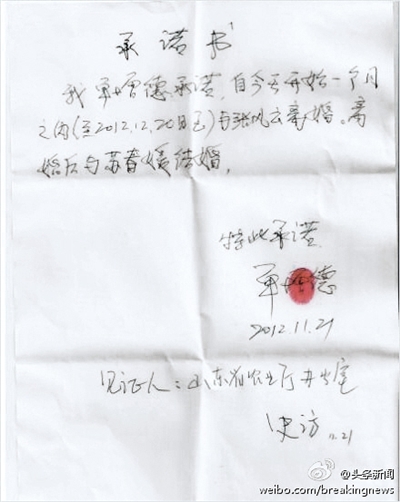 承诺书
我单增德承诺，自今天开始一个月
之内(至2012.12.20日止)与张凤云离婚。离
婚后与苏春媛结婚，
特此承诺
单增德
2012.11.21
见证人：山东省农业厅办公室
史访 11.21
@头条新闻
weibo.com/breakingnews